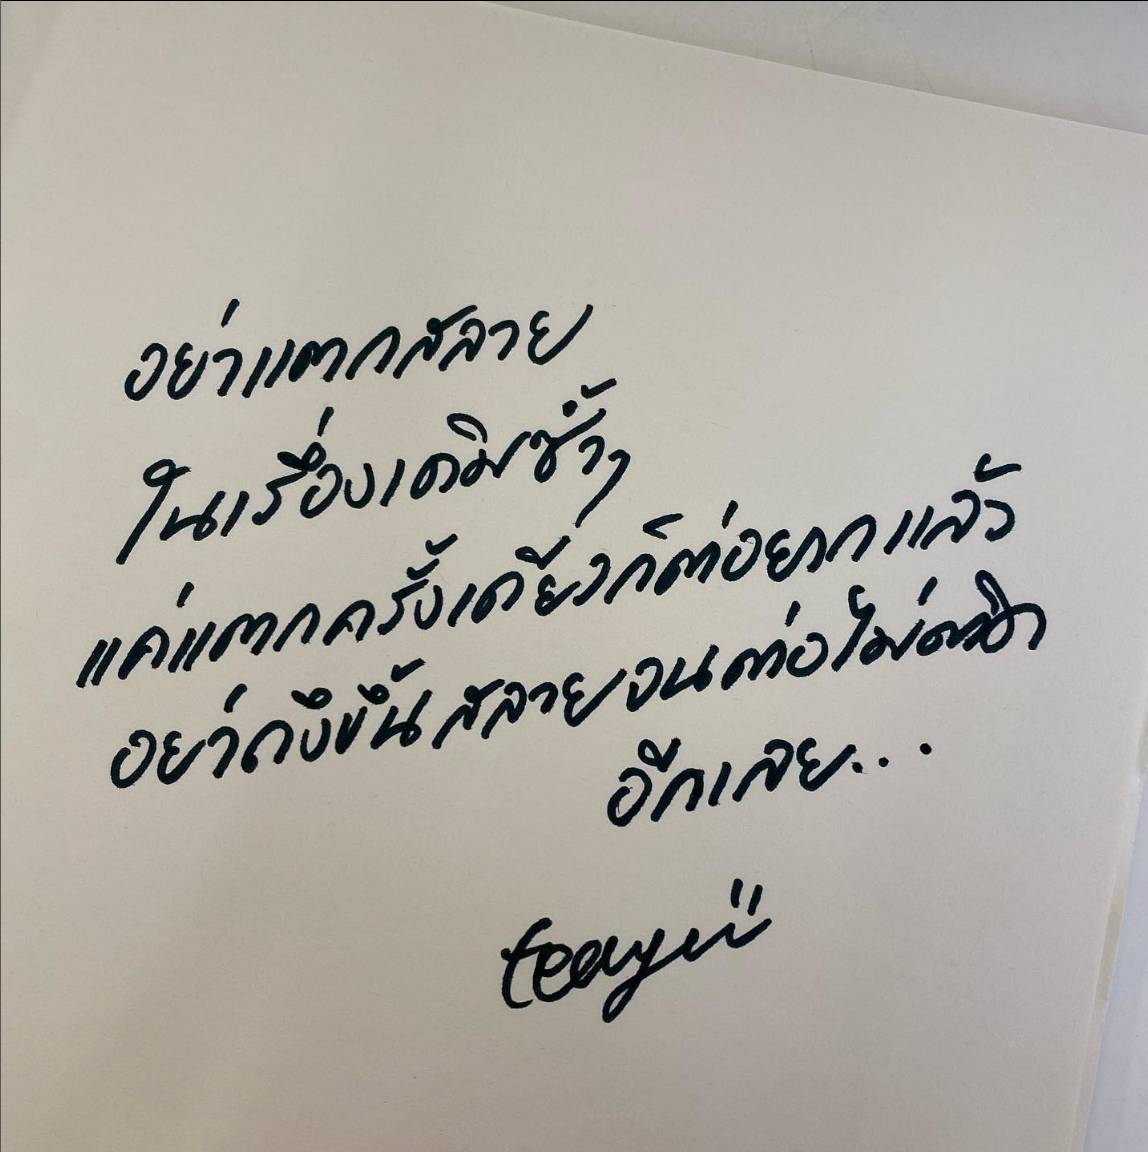 อย่าแตกสลาย
ในเรื่องเดิมซ้ำๆ
แค่แตกครั้งเดียวก็ต่อยากแล้ว
อย่าถึงขึ้นสลายจนต่อไม่ติด
อีกเลย...